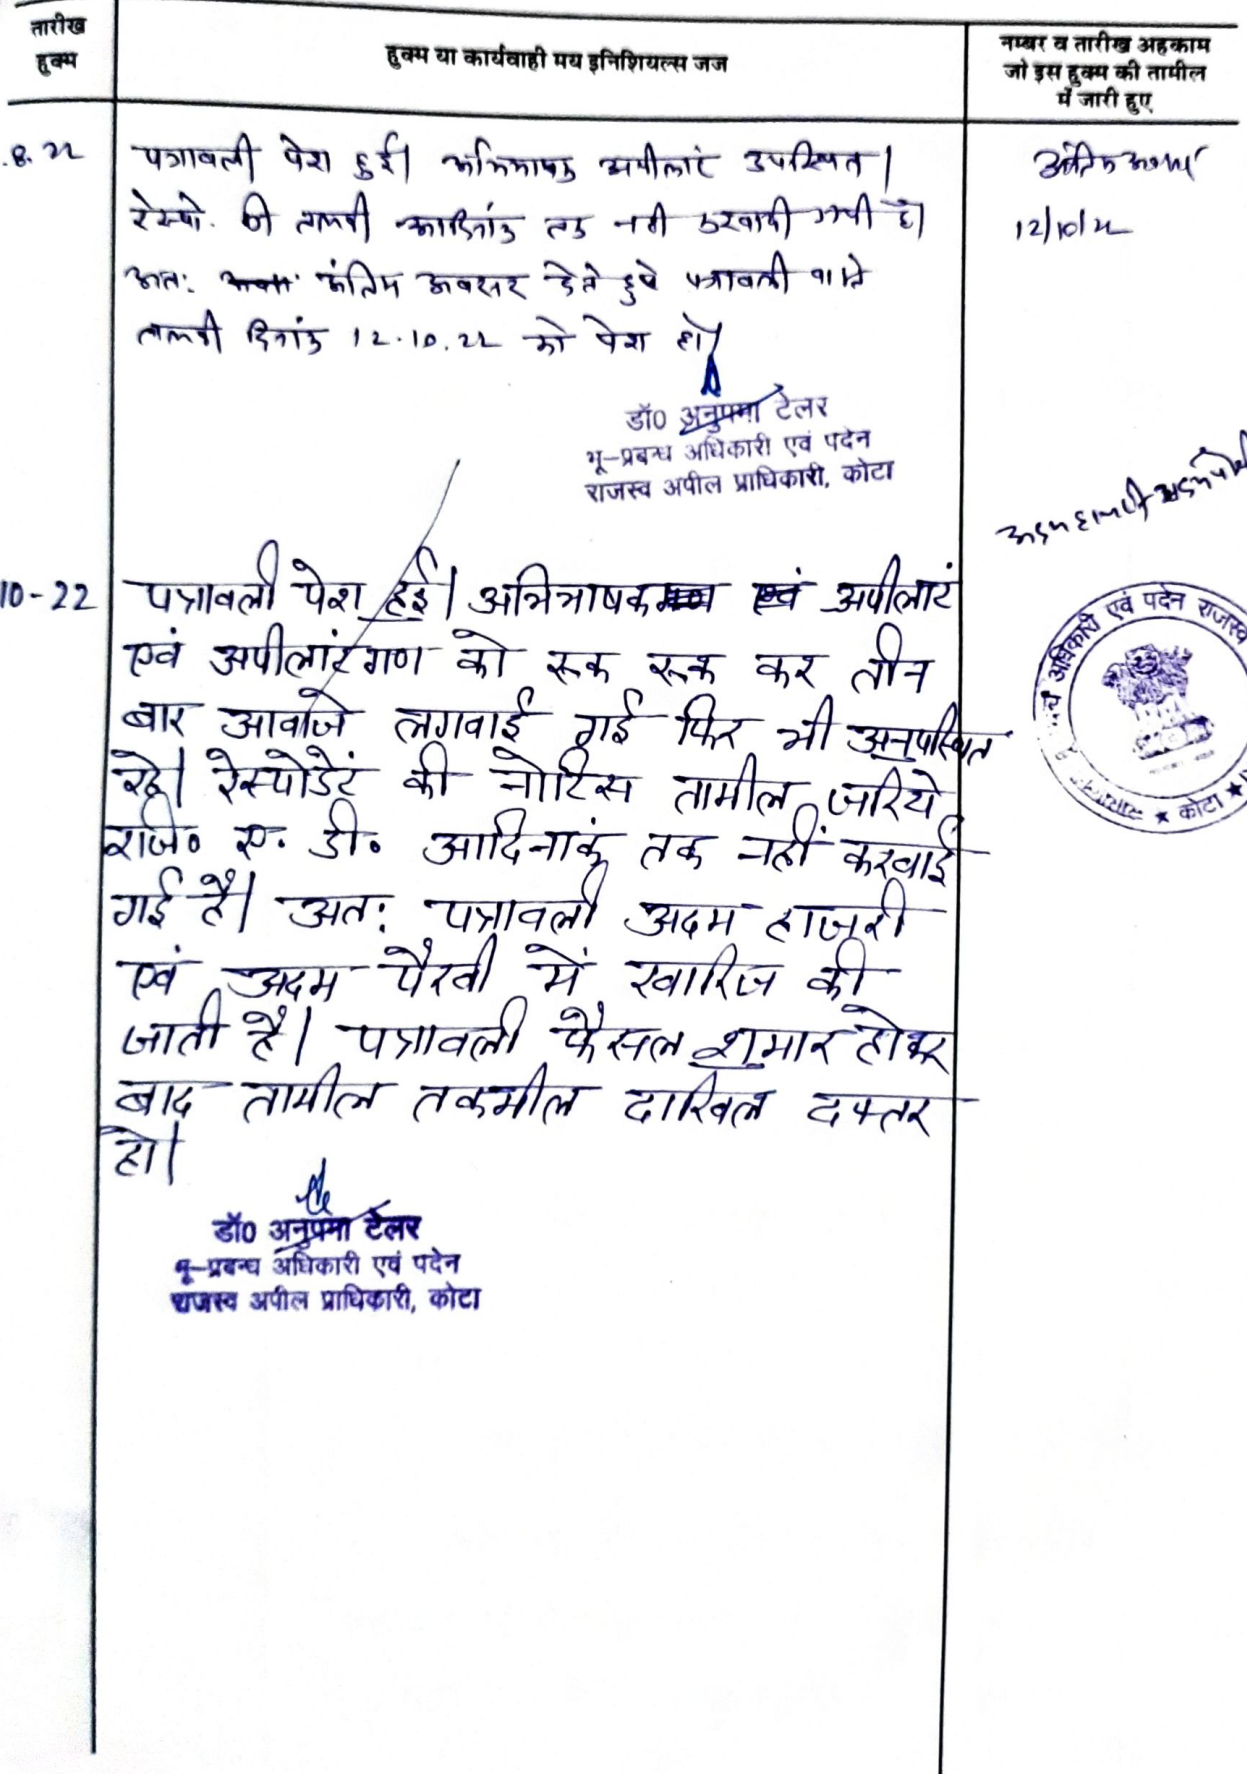 तारीख
हुक्म
हुक्म या कार्यवाही मय इनिशियल्स जज
नम्बर व तारीख अहकाम
जो इस हुक्म की तामील
में जारी हुए
.8.22
पत्रावली पेश हुई। अभिभाषक अपीलांट उपस्थित।
रेस्पो. की तलबी आदिनांक तक नही करवायी गयी है।
अतः अंतिम अवसर देते हुये पत्रावली वास्ते
तलबी दिनांक 12.10.22 को पेश हो।
अंतिम अवसर
12/10/22
डॉ0 अनुपमा टेलर
भू-प्रबन्ध अधिकारी एवं पदेन
राजस्व अपील प्राधिकारी, कोटा
अदम हाजरी अदम पैरवी
10-22
पत्रावली पेश हुई। अभिभाषक एवं अपीलांट
एवं अपीलांटगण को रूक रूक कर तीन
बार आवाजे लगवाई गई फिर भी अनुपस्थित
रहे। रेस्पोडेंट की नोटिस तामील जरिये
रजि० ए. डी. आदिनाकं तक नहीं करवाई
गई है। अतः पत्रावली अदम हाजरी
एवं अदम पैरवी में खारिज की
जाती है। पत्रावली फैसल शुमार होकर
बाद तामील तकमील दाखिल दफ्तर
हो।
अधिकारी एवं पदेन राजस्व
★ कोटा ★
डॉ0 अनुपमा टेलर
भू-प्रबन्ध अधिकारी एवं पदेन
राजस्व अपील प्राधिकारी, कोटा